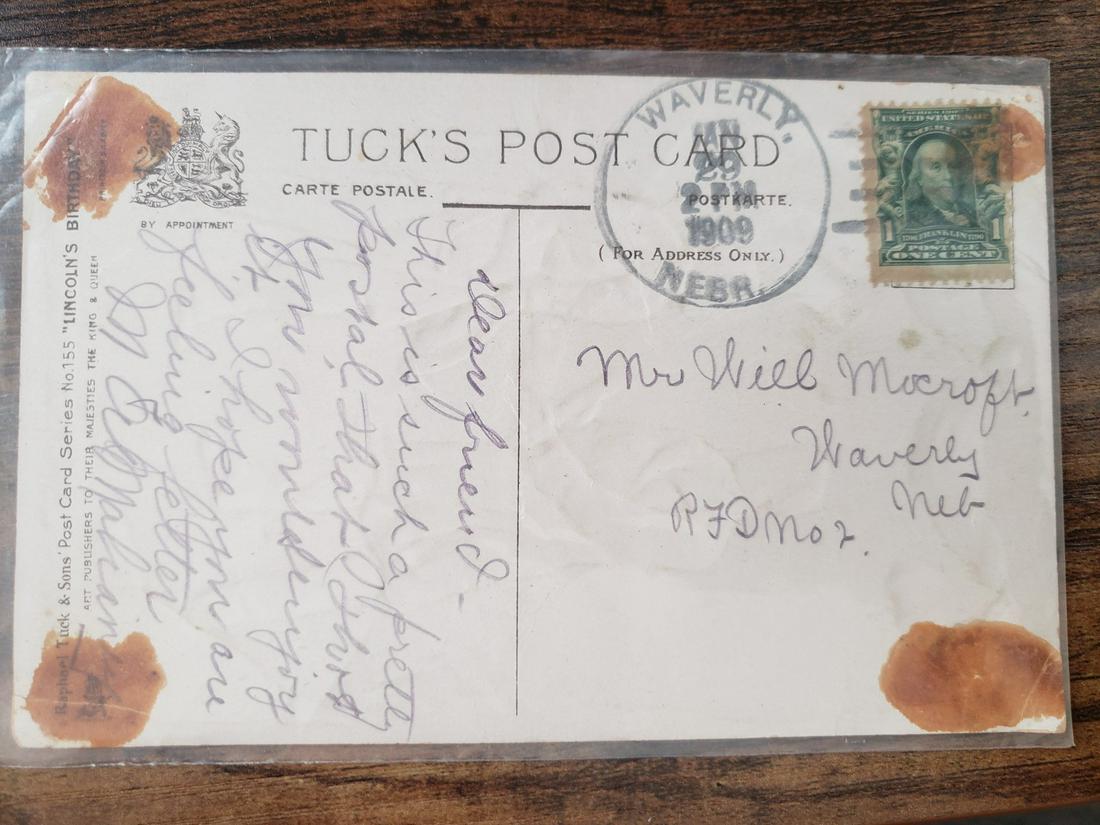 TUCK'S POST CARD
CARTE POSTALE.
POSTKARTE.
(FOR ADDRESS ONLY.)
BY APPOINTMENT
WAVERLY,
29
1909
NEBR.
SERIES 1902
UNITED STATES OF
AMERICA
1 1706 FRANKLIN 1790 1
POSTAGE
ONE CENT
Mr Will Mocroft.
Waverly
Neb
RFD No 2.
Dear friend –
This is such a pretty
Postal that I thot
you would enjoy
it I hope you are
feeling better
Raphael Tuck & Sons' Post Card Series No. 155 "LINCOLN'S BIRTHDAY"
ART PUBLISHERS TO THEIR MAJESTIES THE KING & QUEEN